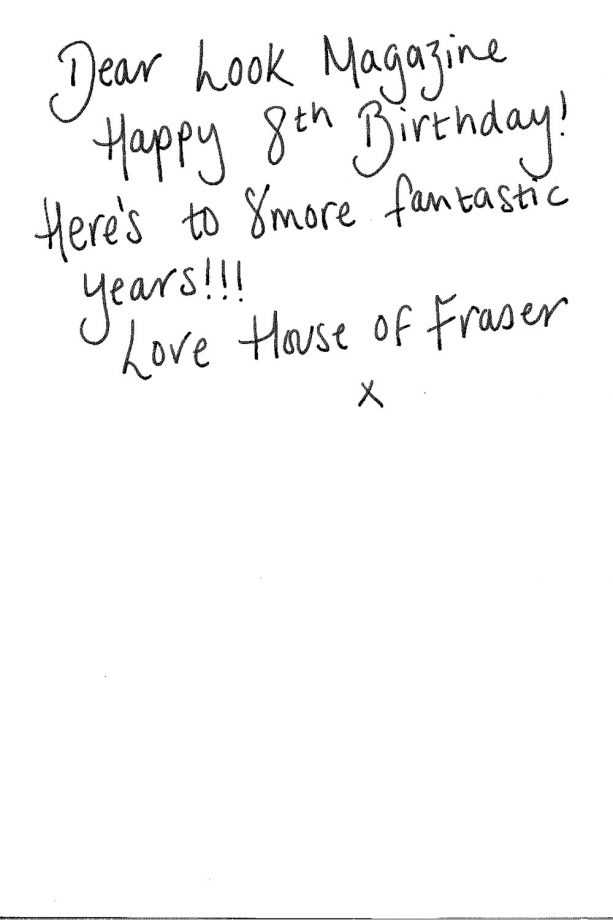 Dear Look Magazine
Happy 8th Birthday!
Here's to 8more fantastic
years!!!
Love House of Fraser
x